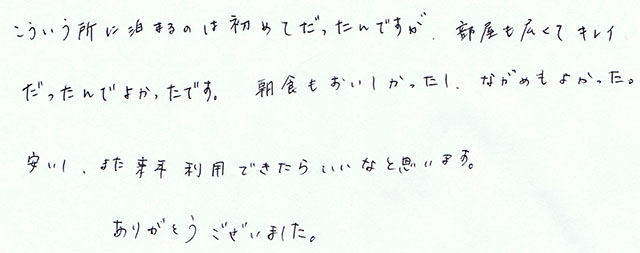 こういう所に泊まるのは初めてだったんですが、部屋も広くてキレイ
だったんでよかったです。 朝食もおいしかったし、ながめもよかった。
安いし、また来年利用できたらいいなと思います。
ありがとうございました。